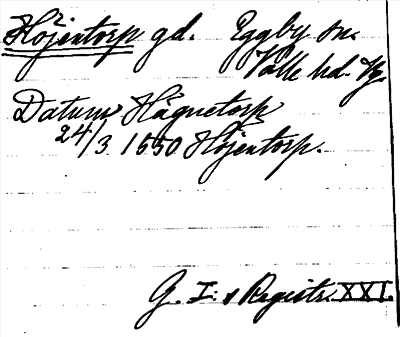 Höjentorp gd. Eggby sn.
Valle hd. Vg.
Datum Högnetorp
24/3 1550 Höjentorp.
G. I:s Registr. XXI.